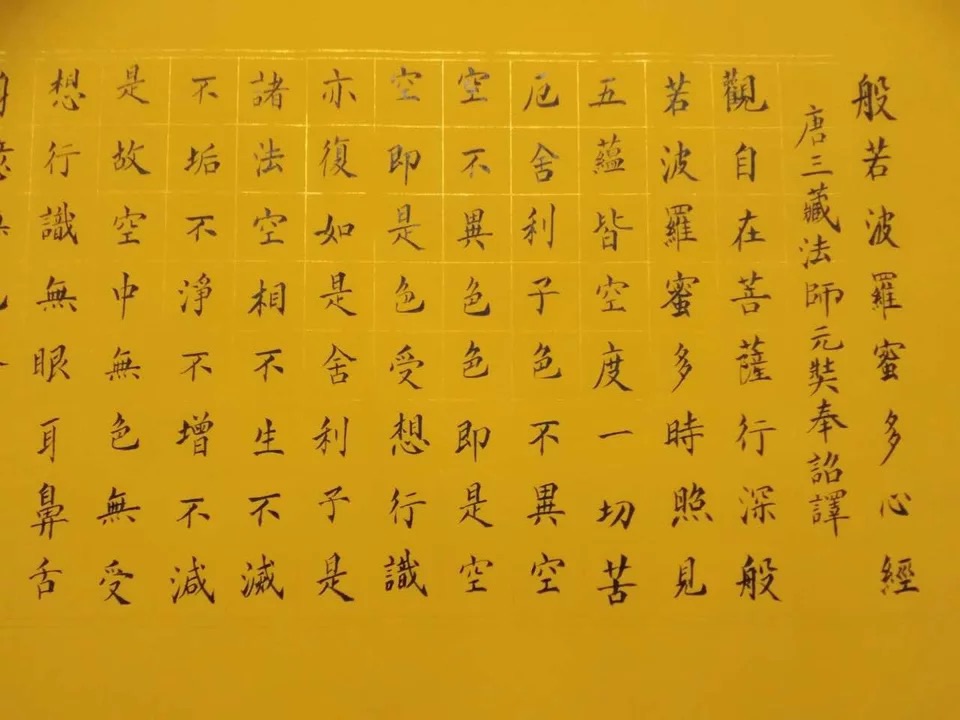 般若波羅蜜多心經
唐三藏法師元奘奉詔譯
觀自在菩薩行深般
若波羅蜜多時照見
五蘊皆空度一切苦
厄舍利子色不異空
空不異色色即是空
空即是色受想行識
亦復如是舍利子是
諸法空相不生不滅
不垢不淨不增不減
是故空中無色無受
想行識無眼耳鼻舌